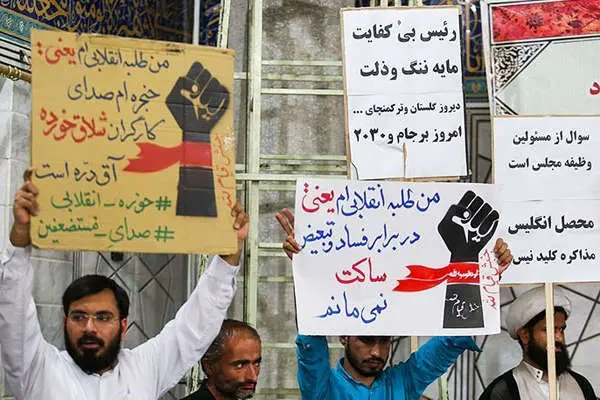 من طلبه انقلابی ام یعنی:
حنجره ام صدای
کارگران شلاق خورده
آق درّه است
#حوزه_انقلابی
#صدای_مستضعفین
رئیس بی کفایت
مایه ننگ وذلت
دیروز گلستان وترکمنچای ...
امروز برجام و ۲۰۳۰
سوال از مسئولین
وظیفه مجلس است
محصل انگلیس
مذاکره کلید نیس
من طلبه انقلابی ام یعنی:
در برابر فساد و تبعیض
ساکت
نمی مانم